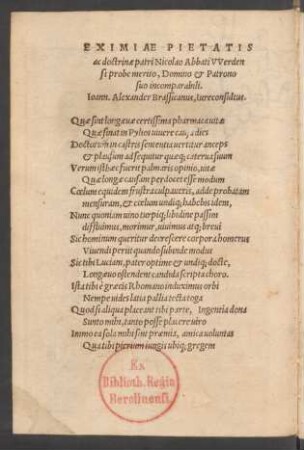 EXIMIAE PIETATIS
ac doctrinæ patri Nicolao Abbati VVerden
si probe merito, Domino & Patrono
suo incomparabili.
Ioann. Alexander Brassicanus, Iureconsultus.
Quæ sint longæuæ certissima pharmaca uitæ
Quæ sonat in Pylios uiuere causa dies
Doctorum in castris sententia uertitur anceps
& plausum adsequitur quæq; caterua suum
Verum isthæc fuerit palmaris opinio, uitæ
Quæ longæ causam perdocet esse modum
Cœlum equidem frustra culpaueris, adde probatam
mensuram, & cœlum undiq; habebis idem,
Nunc quoniam uino turpiq; libidine passim
diffluimus, morimur, uiuimus atq; breui
Sic hominum queritur decrescere corpora Homerus
Viuendi periit quando subinde modus
Sic tibi Luciani, pater optime & undiq; docte,
Longæuo ostendent candida scripta choro.
Ista tibi è græcis Rhomano induximus orbi
Nempe uides latii pallia tecta toga
Quod si aliqua placeant tibi parte, Ingentia dona
Sunto mihi, tanto posse placere uiro
Immo ea sola mihi sint præmia, amica uoluntas
Qua tibi pierium iungis ubiq; gregem
Ex
Biblioth. Regia
Berolinensi.